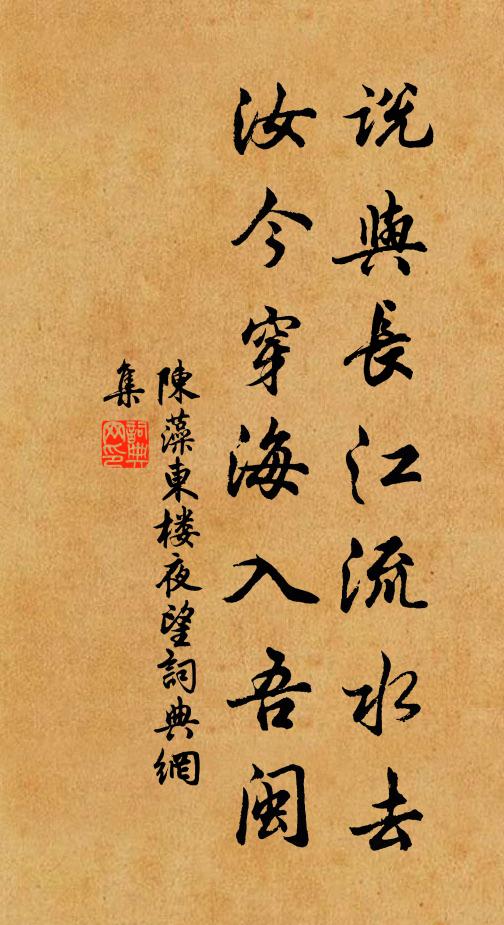 説與長江流水去
汝今穿海入吾閩
陳藻東楼夜望詞典網
集
詞典
网印